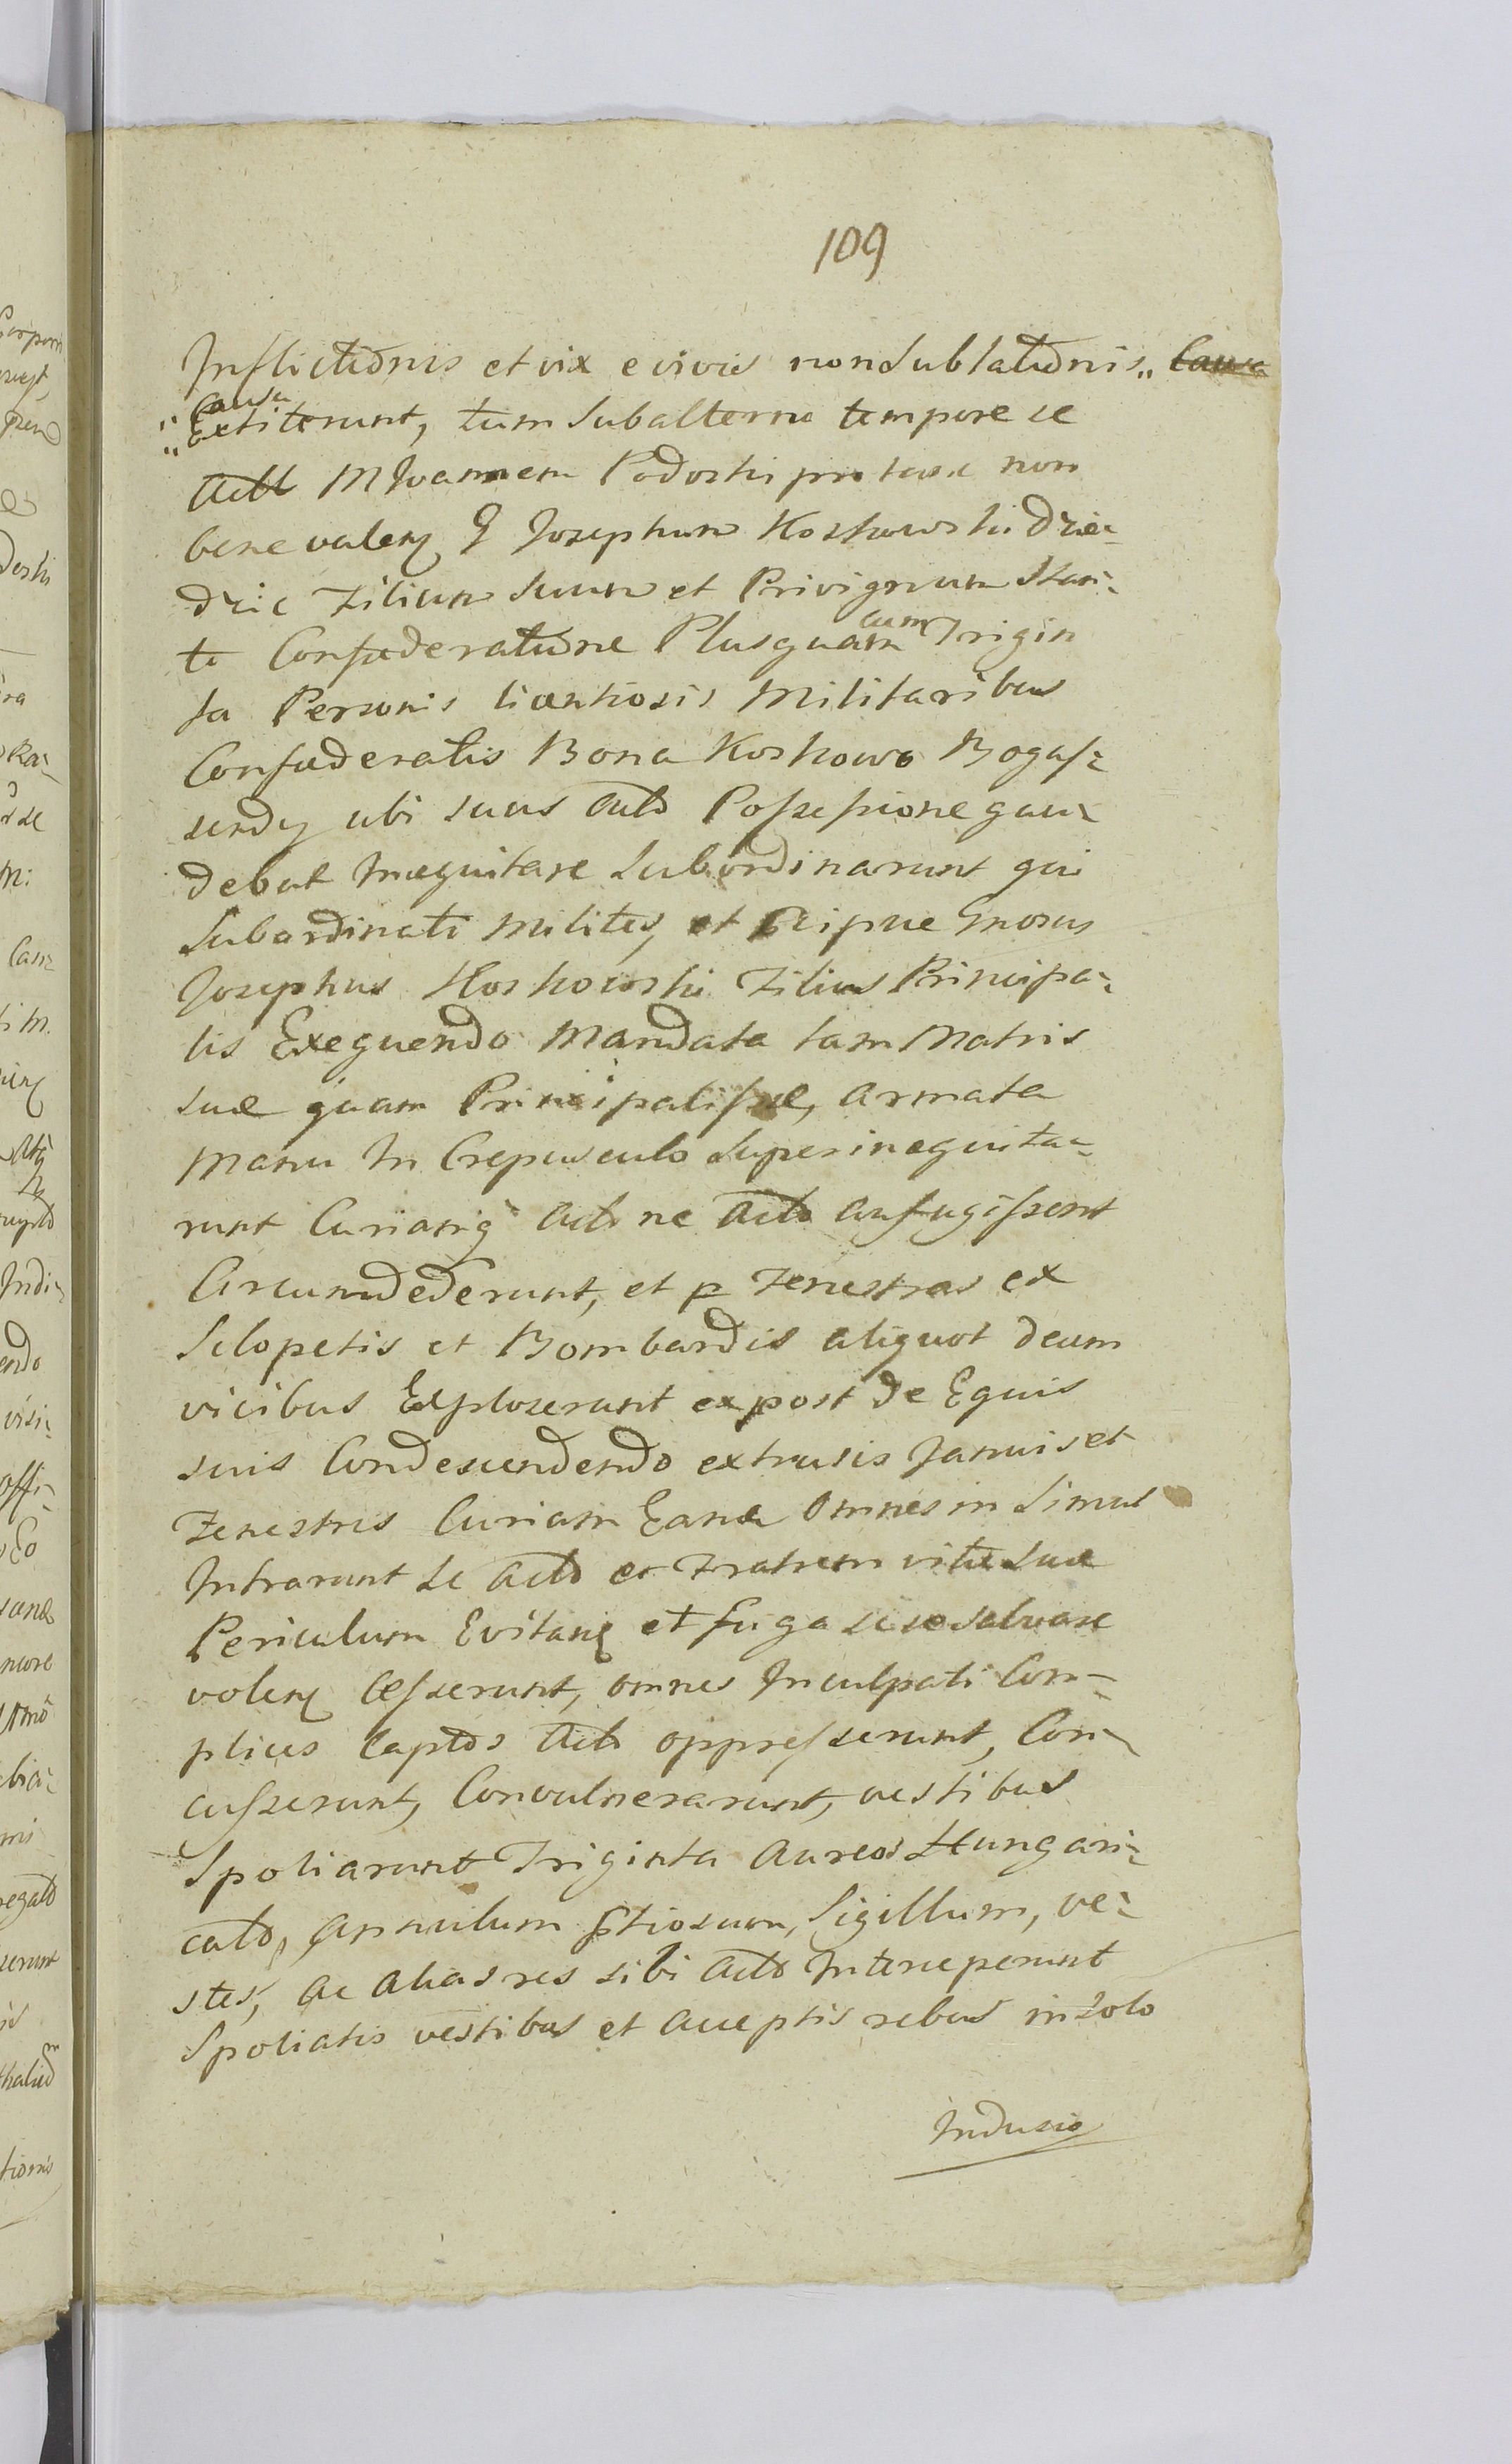 109
Inflictionis et vix e vivis non Sublationis „ Causa
„ Causa
„ Extiterunt, tum Subalterno tempore se
Actt M Joannem Podoski pro tunc non
bene valen Josephum Koskowski Dzie-
dzic Filium Suum et Privignum Stan-
te Confæderatione Plusquam cum Trigin
ta Personis licentiosis Militaribus
Confæderatis Bona Koskowo Bogusz
sendy ubi suus Actto Possessione gau-
debat Inequitare Subordinarunt qui
Subordinati Milites, et Pcipue Gnosus
Josephus Koskowski Filius Principa-
lis Exequendo Mandata tam Matris
suæ quam Principalissæ, armata
Manu In Crepusculo Superinequita-
runt Curiamq Actto ne Actto aufugissent
Circumdederunt, et p Fenestras ex
Sclopetis et Bombardis aliquot decem
vicibus Exploserunt ex post de Equis
suis Condescendendo extrusis Januis et
Fenestris Curiam Eand Omnes in Simul
Intrarunt Se Actto et Fratrem vitæ Suæ
Periculum Evitan et fuga sese salvare
volen Cesserunt, omnes Inculpati Com-
plices Captos Actto oppresserunt, Con-
cusserunt, Convulnerarunt, vestibus
Spoliarunt Triginta Aureos Hungari-
cato, Annulum ptiosum, Sigillum, ve-
stes, ac alias res sibi Actto Interceperunt
Spoliatis vestibus et acceptis rebus in Solo
Indusio